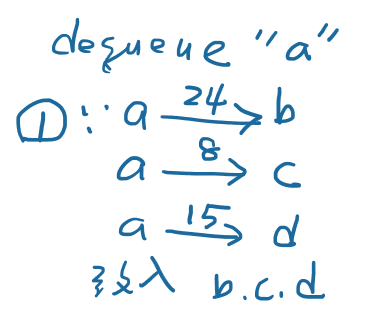 dequeue "a"
① ∵ a 24→ b
a 8→ c
a 15→ d
放入 b.c.d